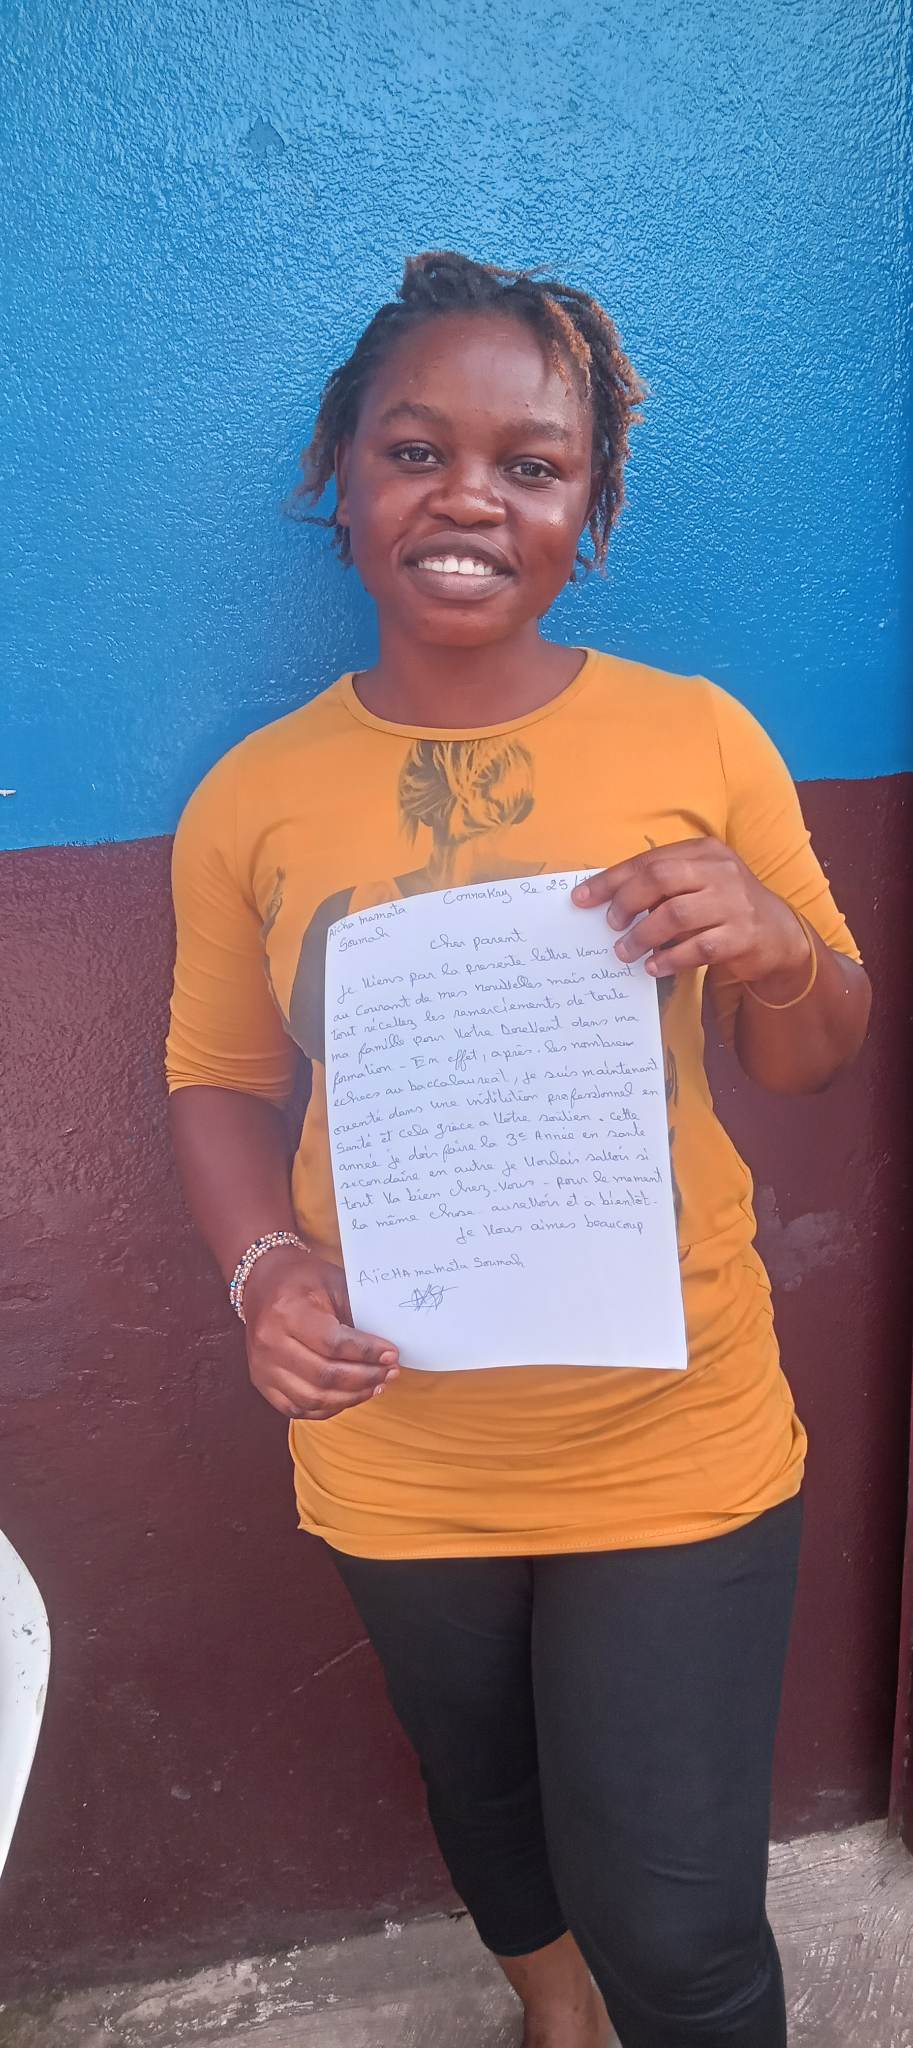 Connakry le 25/
Aïcha mamata
Soumah
cher parent
Je Viens par la presente lettre Vous
au Courant de mes nouvelles mais allant
tout récevez les remerciements de toute
ma famille pour Votre Devellent dans ma
formation - En effet, après les nombreux
echecs au baccalaureat, je suis maintenant
orienté dans une institution professionnel en
Santé et cela grâce a Votre soutien. cette
année je dois faire la 3e Année en sante
secondaire en autre je Voulais savoir si
tout Va bien chez-vous - pour le moment
la même chose. aurevoir et a bientôt-
Je Vous aimes beaucoup
AïcHA mamata Soumah